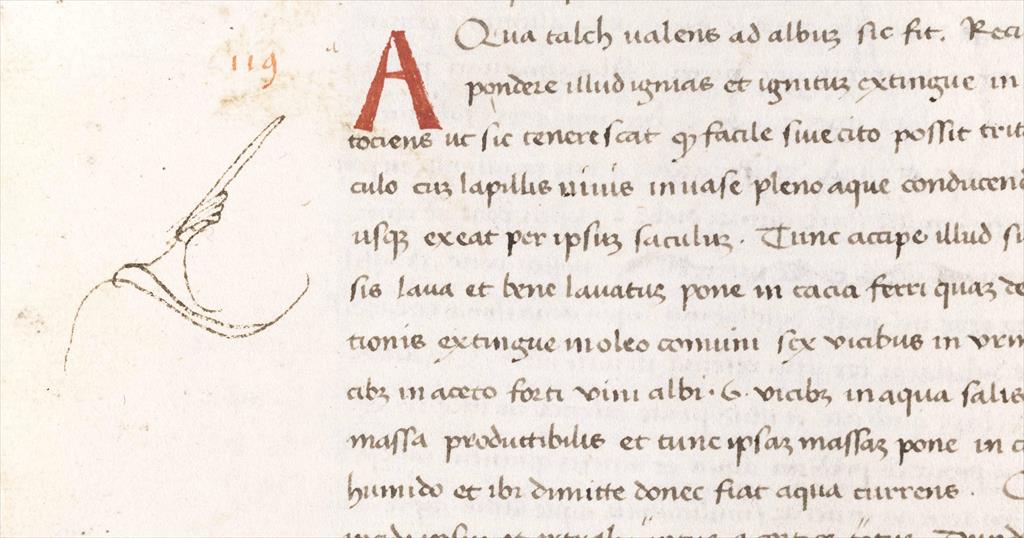 119
AQua talch ualens ad albuꝫ sic fit. Reci
pondere illud ignias et ignituꝫ extingue in
tociens ut sic tenerescat ꝙ facile siue cito possit trit
culo cuꝫ lapillis uiuis in uase pleno aque conducend
usqꝫ exeat per ipsuꝫ saculuꝫ. Tunc accipe illud su
sis laua et bene lauatuꝫ pone in cacia ferri quaꝫ de
tionis extingue in oleo comuni sex vicibus in vrin
cibꝫ in aceto forti vini albi · 6 · vicibꝫ in aqua salis
massa productibilis et tunc ipsaꝫ massaꝫ pone in c
humido et ibi dimitte donec fiat aqua currens.